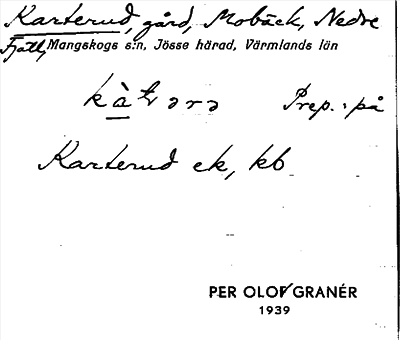 Karterud, gård, Mobäck, Nedre
Fjäll, Mangskogs s:n, Jösse härad, Värmlands län
kàtərə Prep.: på
Karterud ek, kb
PER OLOF GRANÉR
1939